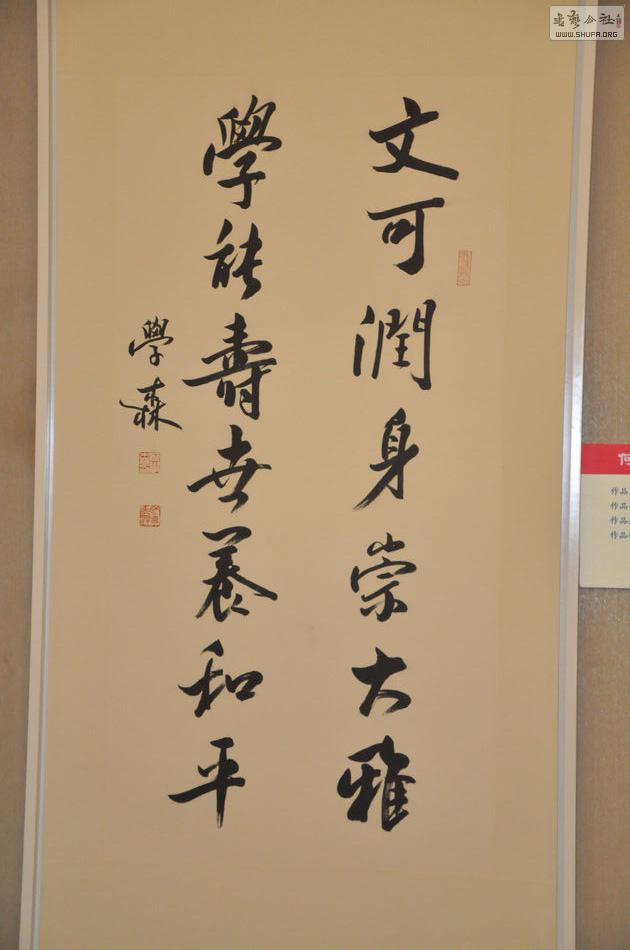 文可潤身崇大雅
學能壽世養和平
學森
書藝公社
WWW.SHUFA.ORG
何
作品
作品
作品
作品